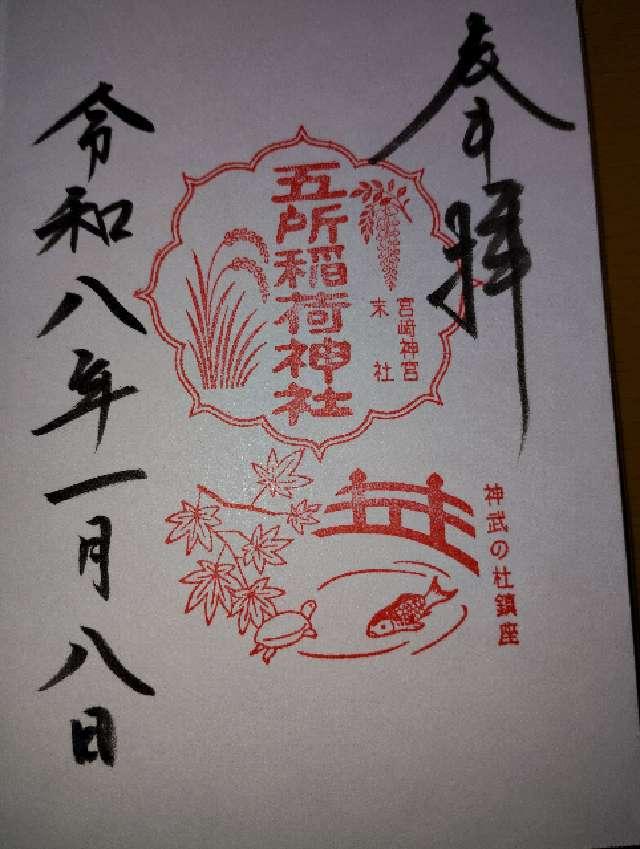 奉拝
宮崎神宮
末社
五所稲荷神社
神武の杜鎮座
令和八年一月八日